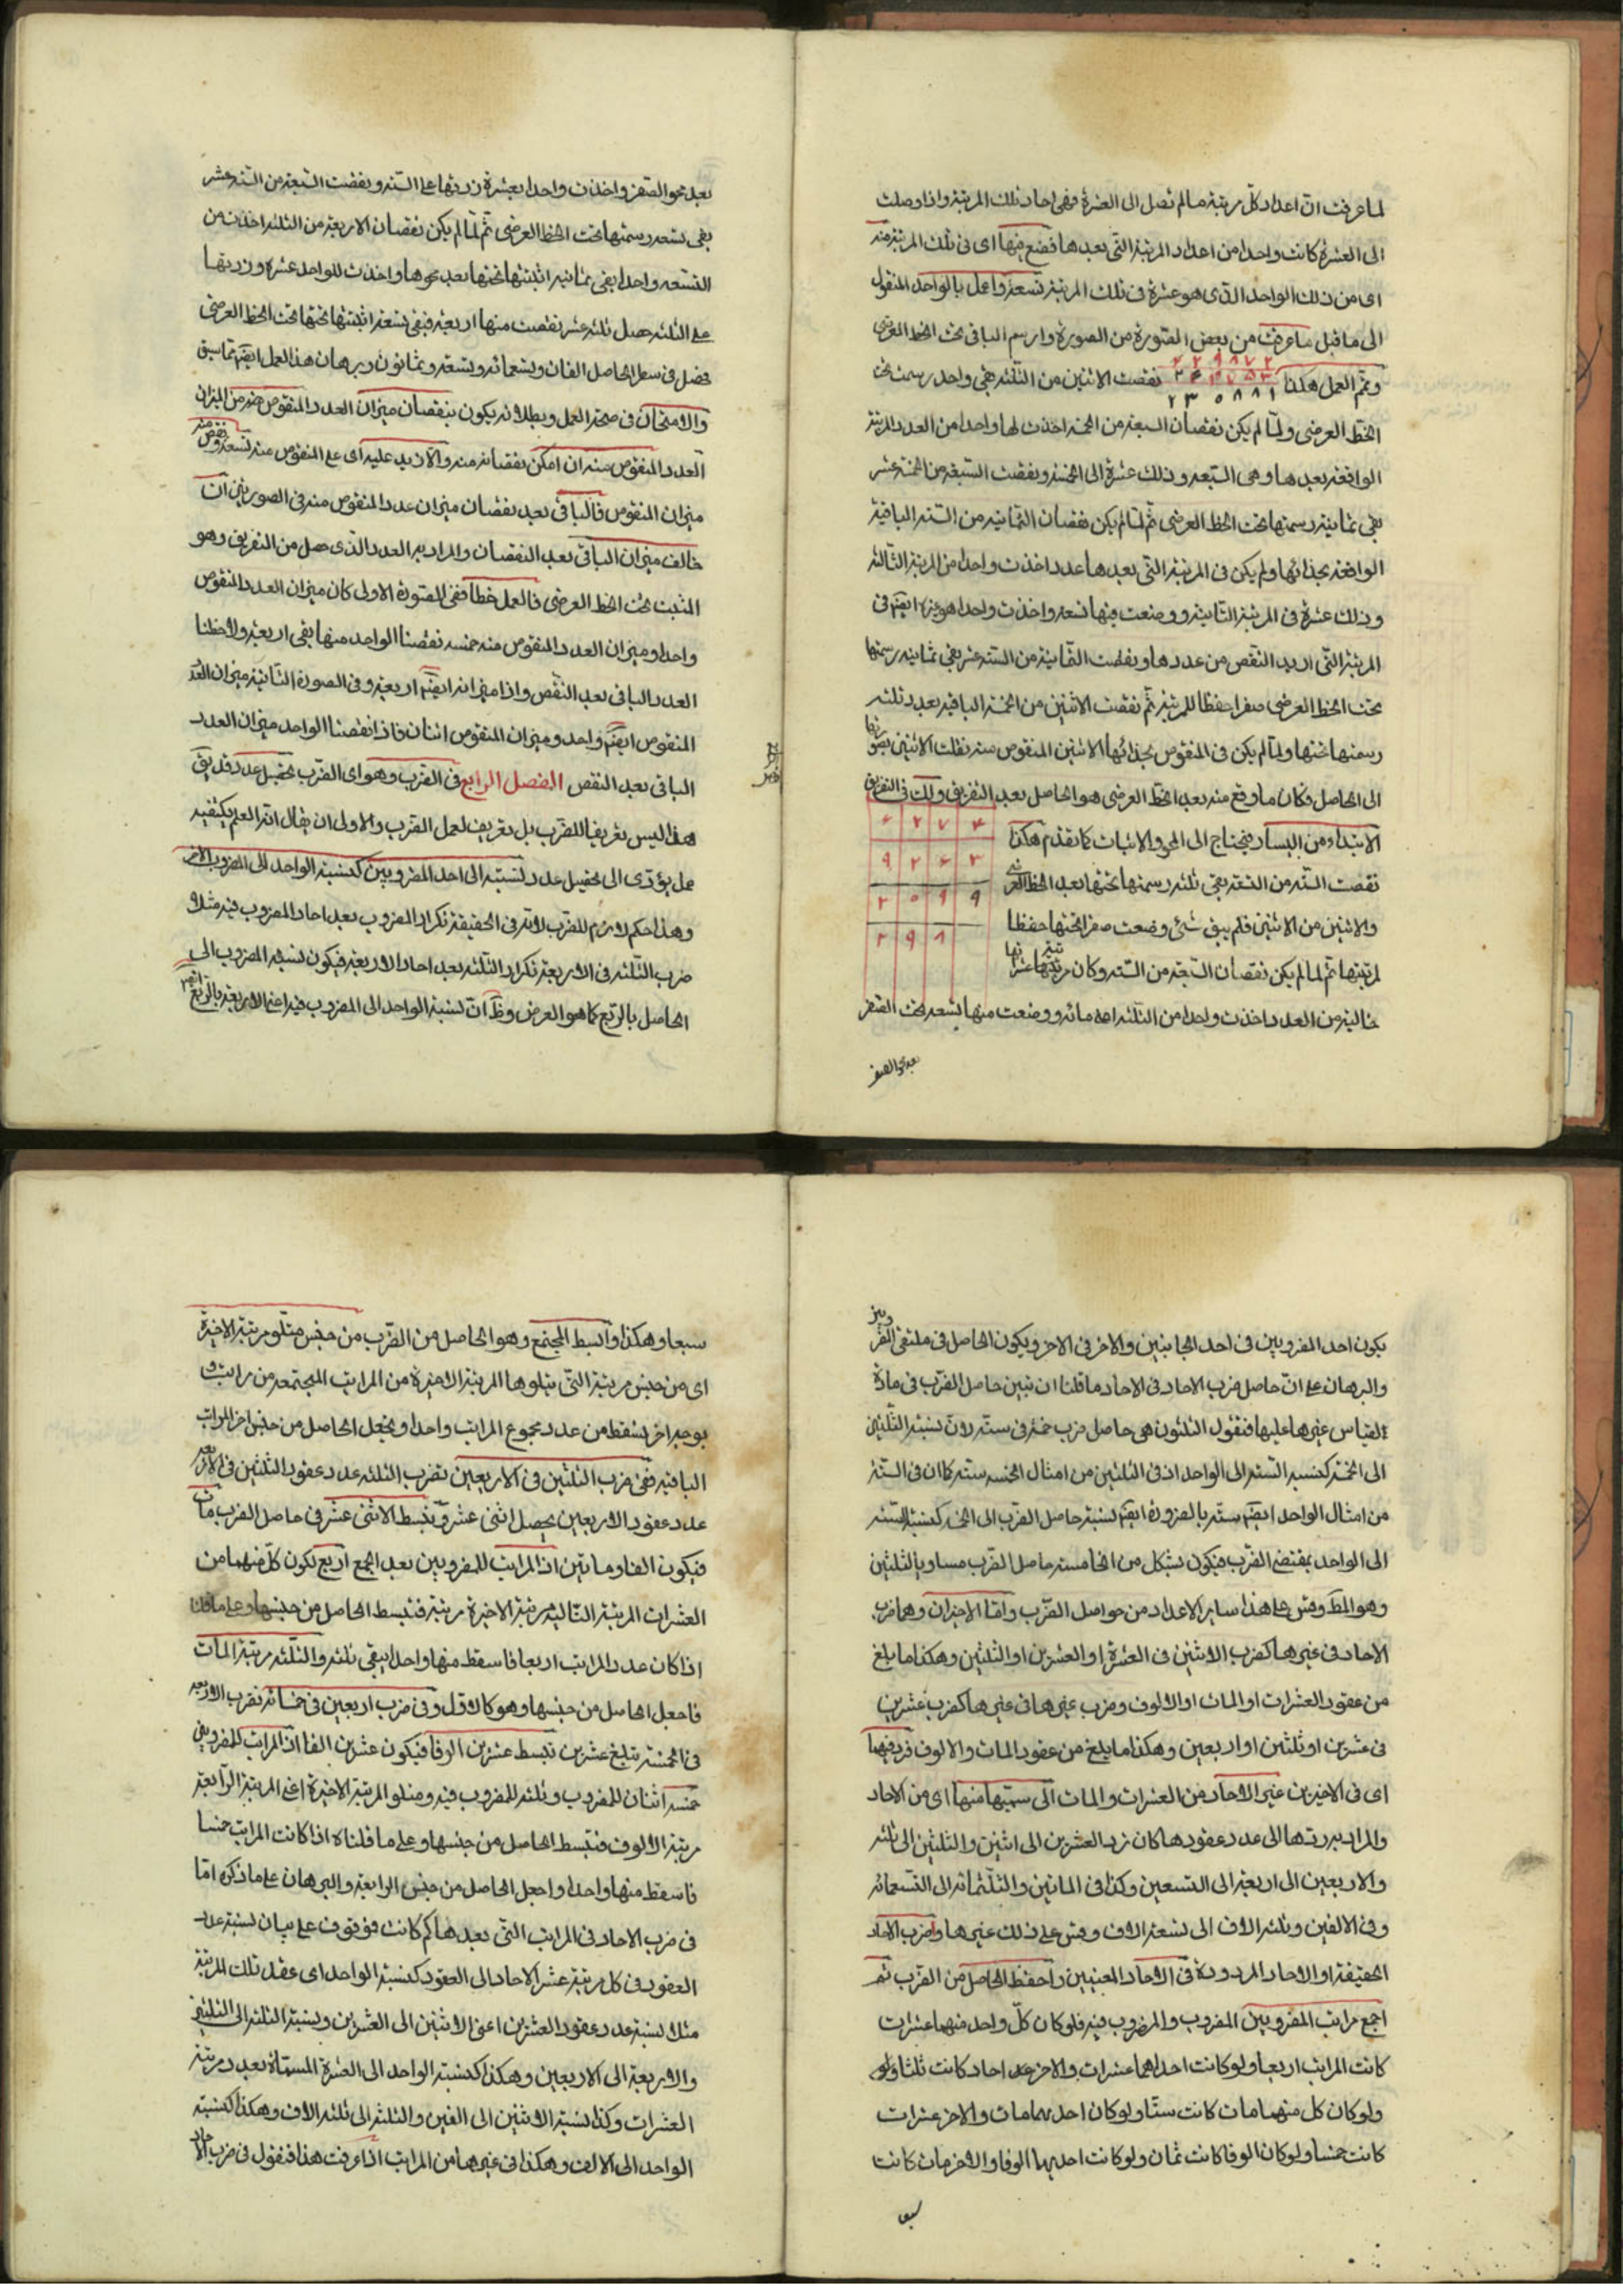 لما عرفت ان اعداد كل مرتبة ما لم تصل الى العشرة فهى احاد تلك المرتبة واذا وصلت
الى العشرة كانت واحدا من اعداد المرتبة التى بعدها فضع منها اى فى تلك المرتبة منه
اى من ذلك الواحد الذى هو عشرة فى تلك المرتبة تسعة واعمل بالواحد المنقول
الى ما قبل ما عرفت من بعض الصورة من الصورة وارسم الباقى تحت الخط العرضى
وتم العمل هكذا نقصت الاثنين من الثلثة بقى واحد رسمت تحت
الخط العرضى ولما لم يكن نقصان السبعة من الخمسة اخذت لها واحدا من العدد المرتبة
الواقعة بعدها وهى السبعة وذلك عشرة الى الخمسة ونقصت السبعة من الخمسة عشر
بقى ثمانية رسمتها تحت الخط العرضى ثم لما لم يكن نقصان الثمانية من الستة الباقية
الواقعة بحذائها ولم يكن فى المرتبة التى بعدها عدد اخذت واحدا من المرتبة الثالثة
وذلك عشرة فى المرتبة الثانية ووضعت منها تسعة واخذت واحدا هو عشرة ايضا فى
المرتبة التى اريد النقص من عددها ونقصت الثمانية من الستة عشر بقى ثمانية رسمتها
تحت الخط العرضى صفرا حفظا للمرتبة ثم نقصت الاثنين من الخمسة الباقية بعد ثلثة
رسمتها تحتها ولما لم يكن فى المنقوص بحذائها الاثنين المنقوص منه نقلت الاثنين بصورتها
الى الحاصل فكان ما وقع منه بعد الخط العرضى هو الحاصل بعد التفريق ولك فى التفريق
الابتداء من اليسار فيحتاج الى المحو والاثبات كما تقدم هكذا
نقصت الستة من التسعة بقى ثلثة رسمتها تحتها بعد الخط العرضى
والاثنين من الاثنين فلم يبق شئ وضعت صفرا تحتها حفظا
لمرتبتها ثم لما لم يكن نقصان السبعة من الستة وكان مرتبة عشراتها
خالية من العدد اخذت واحدا من الثلثة اعنى مائة ووضعت منها تسعة تحت الصفر
بعد محو الصفر
بعد محو الصفر واخذت واحدا بعشرة زدتها على الستة ونقصت السبعة من الستة عشر
بقى تسعة رسمتها تحت الخط العرضى ثم لما لم يكن نقصان الاربعة من الثلثة اخذت من
التسعة واحدا بقى ثمانية اثبتتها تحتها بعد محوها واخذت للواحد عشرة وزدتها
على الثلثة حصل ثلثة عشر نقصت منها اربعة فبقى تسعة اثبتتها تحتها تحت الخط العرضى
فضل فى سطر الحاصل الفان وتسعمائة وتسعة وثمانون وبرهان هذا العمل ايضا كما سبق
والامتحان فى صحة العمل وبطلانه يكون بنقصان ميزان العدد المنقوص منه من الميزان
العدد المنقوص منه ان امكن نقصانه منه والا زيد عليه اى على المنقوص منه تسعة ونقص منه
ميزان المنقوص فالباقى بعد نقصان ميزان عدد المنقوص منه فى الصورتين ان
خالف ميزان الباقى بعد النقصان والمراد به العدد الذى حصل من التفريق وهو
المثبت تحت الخط العرضى فالعمل خطأ ففى الصورة الاولى كان ميزان العدد المنقوص
واحدا وميزان العدد المنقوص منه خمسة نقصنا الواحد منها بقى اربعة ولاحظنا
العدد الباقى بعد النقص واذا ميزانه ايضا اربعة وفى الصورة الثانية ميزان العدد
المنقوص ايضا واحد وميزان المنقوص اثنان فاذا نقصنا الواحد ميزان العدد
الباقى بعد النقص الفصل الرابع فى الضرب وهو اى الضرب تحصيل عدد قد يق
هذا ليس تعريفا للضرب بل تعريف لعمل الضرب والاولى ان يقال انه العلم بكيفية
عمل يؤدى الى تحصيل عدد نسبته الى احد المضروبين كنسبة الواحد الى المضروب الاخر
وهذا حكم لازم للضرب لانه فى الحقيقة تكرار المضروب بعدد احاد المضروب فيه مثلا
ضرب الثلثة فى الاربعة تكرار الثلثة بعدد احاد الاربعة فيكون نسبة المضروب الى
الحاصل بالربع كما هو العرض وظ ان نسبة الواحد الى المضروب فيه اعنى الاربعة بالربع ايضا
يكون احد المضروبين فى احد الجانبين والاخر فى الاخر ويكون الحاصل فى ملتقى الضروبين
والبرهان على ان حاصل ضرب الاحاد فى الاحاد ما قلنا ان نبين حاصل الضرب فى مادة
القياس غيرها عليها فنقول الثلثون هى حاصل ضرب خمسة فى ستة لان نسبة الثلثين
الى الخمسة كنسبة الستة الى الواحد اذ فى الثلثين من امثال الخمسة ستة كما ان فى الستة
من امثال الواحد ايضا ستة بالضرورة ايضا نسبة حاصل الضرب الى الخمسة كنسبة الستة
الى الواحد بمقتضى الضرب فيكون بشكل من الخامسة حاصل الضرب مساويا لثلثين
وهو المط وقس على هذا ساير الاعداد من حواصل الضرب واما الاخيران وهما ضرب
الاحاد فى غيرها كضرب الاثنين فى العشرة او العشرين او الثلثين وهكذا ما بلغ
من عقود العشرات او المات او الالوف وضرب غيرها فى غيرها كضرب عشرين
فى عشرين او ثلثين او اربعين وهكذا ما بلغ من عقود المات والالوف فرد فيهما
اى فى الاخيرين غير الاحاد من العشرات والمات الى سميها منها اى من الاحاد
والمراد بردتها الى عدد عقودها كان نرد العشرين الى اثنين والثلثين الى ثلثة
والاربعين الى اربعة الى التسعين وكذا فى الماتين والثلثمائة الى التسعمائة
وفى الالفين وثلثة الاف الى تسعة الاف وقس على ذلك غيرها واضرب الاحاد
الحقيقة او الاحاد المردودة فى الاحاد المعنيين واحفظ الحاصل من الضرب ثم
اجمع مراتب المضروبين المضروب والمضروب فيه فلو كان كل واحد منهما عشرات
كانت المراتب اربعا ولو كانت احداهما عشرات والاخر احاد كانت ثلثا
ولو كان كل منهما مات كانت ستا ولو كان احدهما مات والاخر عشرات
كانت خمسا ولو كان الوفا كانت ثمان ولو كانت احديهما الوفا والاخر مات كانت
سبعا
سبعا وهكذا وابسط المجتمع وهو الحاصل من الضرب من جنس متلو مرتبة الاخيرة
اى من جنس مرتبة التى يتلوها المرتبة الاخيرة من المراتب المجتمعة من مراتب و
بوجه اخر يسقط من عدد مجموع المراتب واحدا ويجعل الحاصل من جنس اخر المراتب
الباقية ففى ضرب الثلثين فى الاربعين نضرب الثلثة عدد عقود الثلثين فى الاربعة
عدد عقود الاربعين يحصل اثنى عشر وتبسط الاثنى عشر فى حاصل الضرب مات
فيكون الفا ومايتين اذ المراتب للمضروبين بعد الجمع اربع لكون كل منهما من
العشرات المرتبة التالية مرتبة الاخيرة مرتبة فتبسط الحاصل من جنسها وعلى ما قلنا
اذا كان عدد المراتب اربعا فاسقط منها واحدا يبقى ثلثة والثلثة مرتبة المات
فاجعل الحاصل من جنسها وهو كالاول وفى ضرب اربعين فى خمسائة نضرب الاربعة
فى الخمسة يبلغ عشرين تبسط عشرين الوفا فيكون عشرين الفا اذ المراتب للمضروبين
خمسة اثنان للمضروب وثلثة للمضروب فيه ومتلو المرتبة الاخيرة اعنى المرتبة الرابعة
مرتبة الالوف فتبسط الحاصل من جنسها وعلى ما قلناه اذا كانت المراتب خمسا
فاسقط منها واحدا واجعل الحاصل من جنس الرابعة والبرهان على ما ذكره اما
فى ضرب الاحاد فى المراتب التى بعدها كم كانت فموقوف على بيان نسبة عدد
العقود فى كل مرتبة عشر الاحاد الى العقود كنسبة الواحد اى عقد تلك المرتبة
مثلا نسبة عدد عقود العشرين اعنى الاثنين الى العشرين ونسبة الثلثة الى الثلثين
والاربعة الى الاربعين وهكذا كنسبة الواحد الى العشرة المسماة بعدد مرتبة
العشرات وكذا نسبة الاثنين الى الفين والثلثة الى ثلثة الاف وهكذا كنسبة
الواحد الى الالف وهكذا فى غيرها من المراتب اذا عرفت هذا فنقول فى ضرب الاحاد